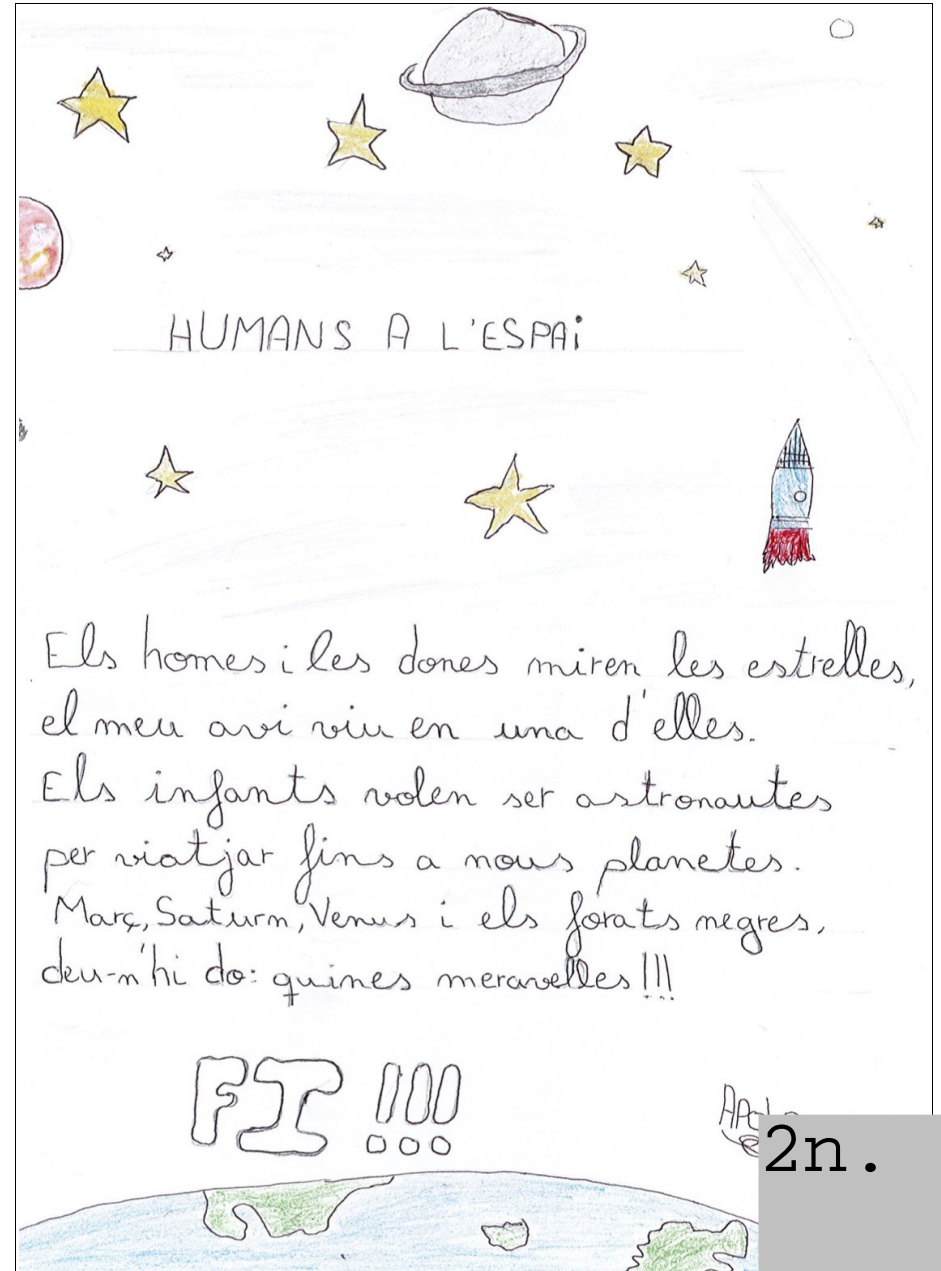 HUMANS A L'ESPAi
Els homes i les dones miren les estrelles,
el meu avi viu en una d'elles.
Els infants volen ser astronautes
per viatjar fins a nous planetes.
Març, Saturn, Venus i els forats negres,
deu-n'hi do: quines meravelles!!!
FI !!!
2n.